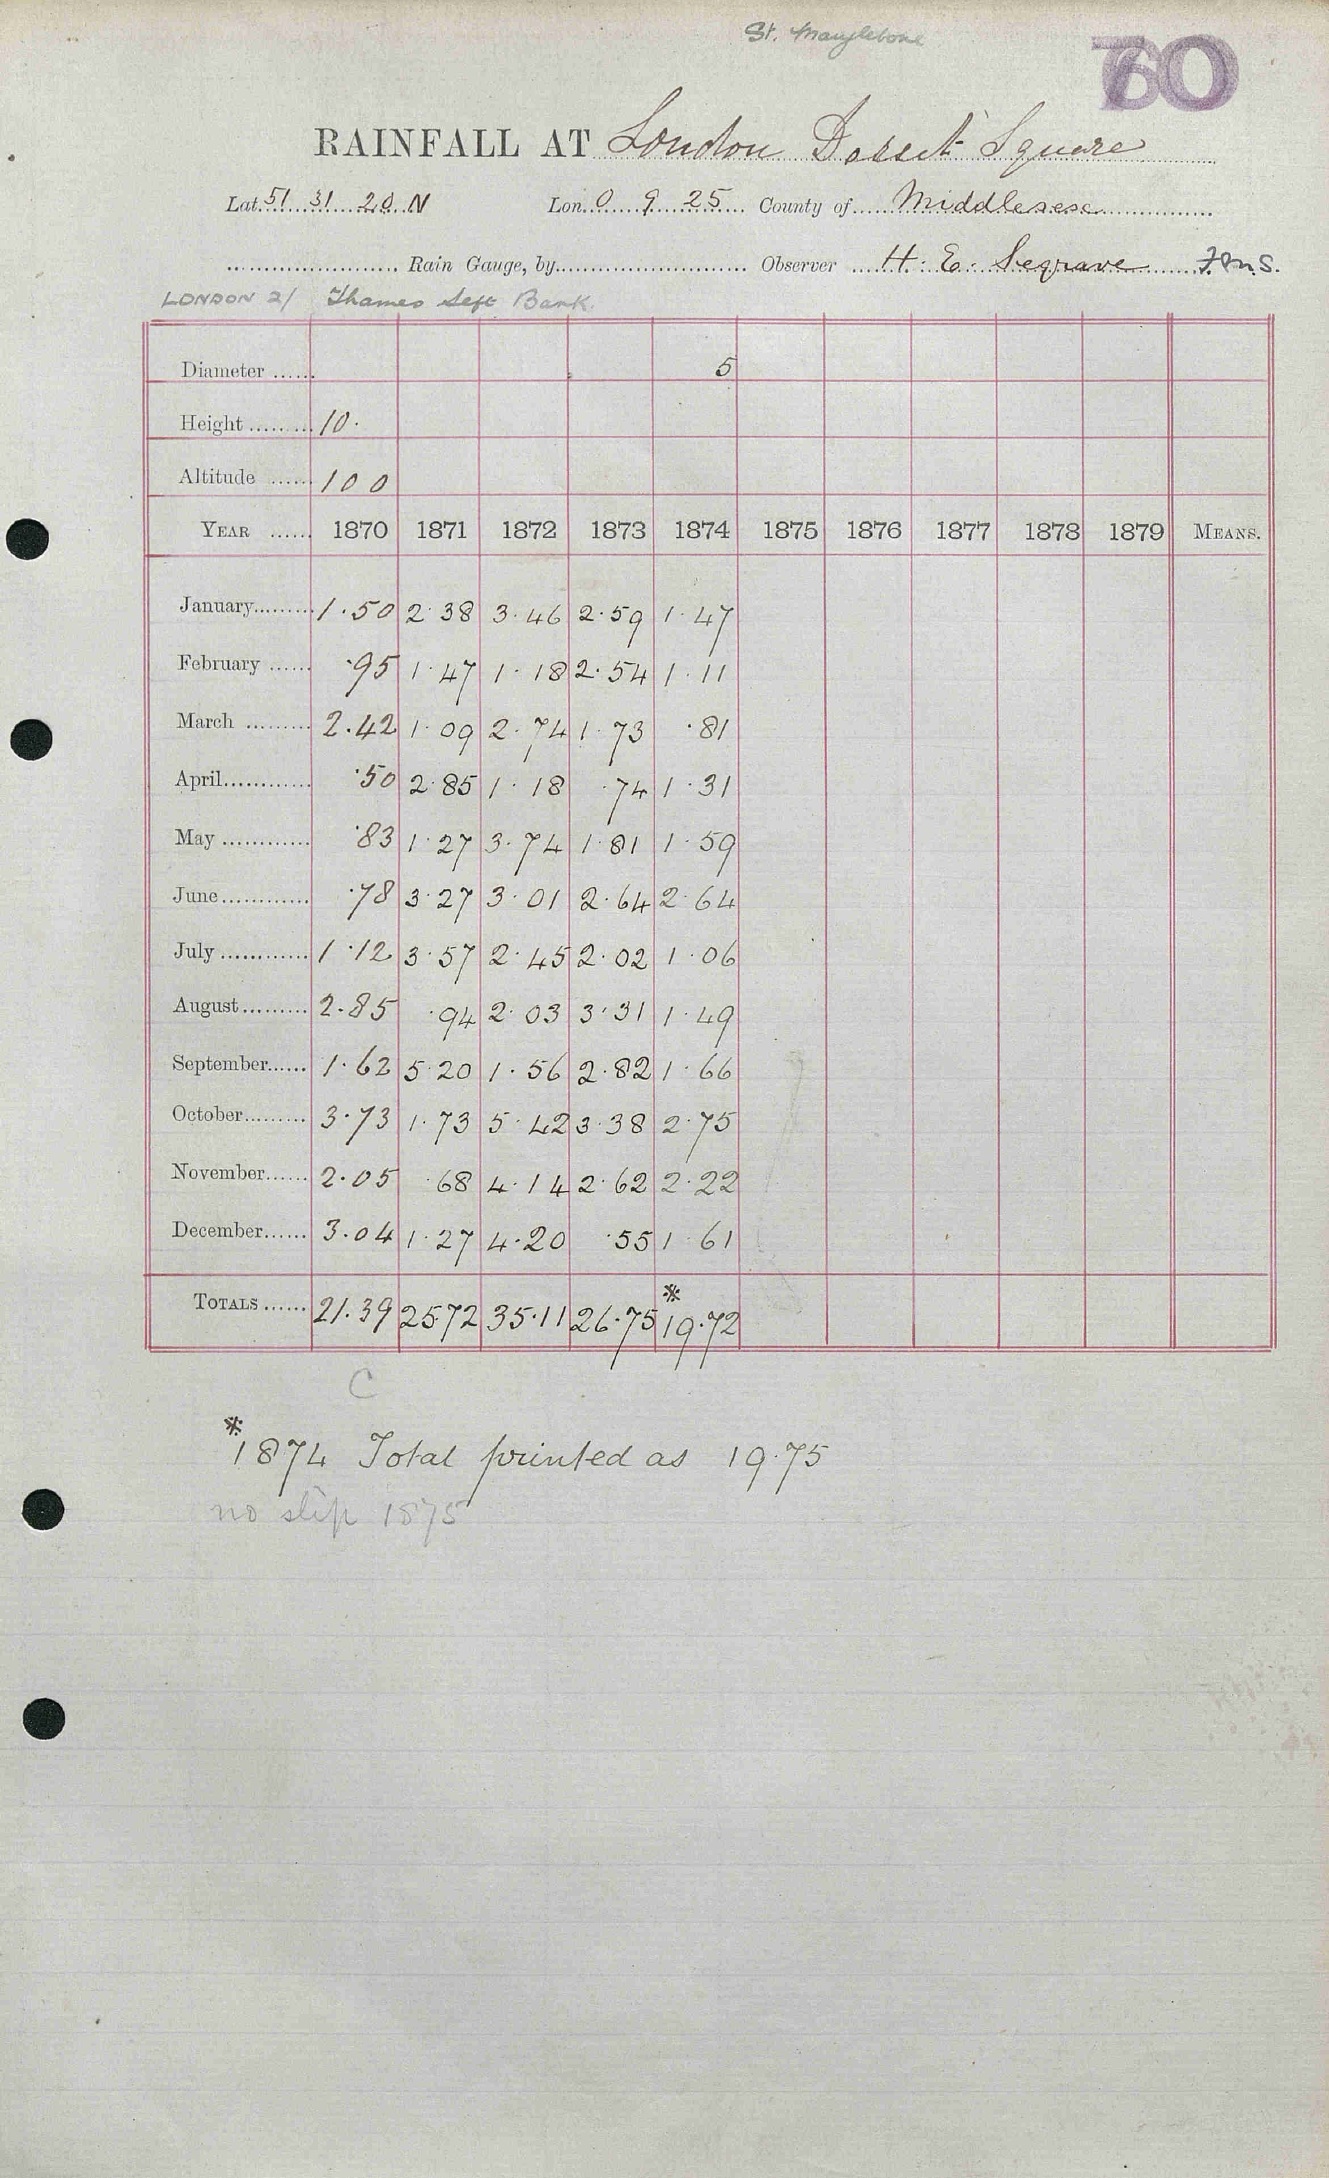 St. Marylebone
RAINFALL AT London Dorset Square
Lat. 51 31 20 N Lon. 0 9 25 County of Middlesex
Rain Gauge, by Observer H. E. Segrave F.M.S.
LONDON 2/ Thames Left Bank.
Diameter ...... 5
Height ......... 10.
Altitude ...... 100
YEAR ...... 1870 1871 1872 1873 1874 1875 1876 1877 1878 1879 MEANS.
January......... 1.50 2.38 3.46 2.59 1.47
February ...... .95 1.47 1.18 2.54 1.11
March ......... 2.42 1.09 2.74 1.73 .81
April............ .50 2.85 1.18 .74 1.31
May ............ .83 1.27 3.74 1.81 1.59
June............ .78 3.27 3.01 2.64 2.64
July ............ 1.12 3.57 2.45 2.02 1.06
August......... 2.85 .94 2.03 3.31 1.49
September...... 1.62 5.20 1.56 2.82 1.66
October......... 3.73 1.73 5.42 3.38 2.75
November...... 2.05 .68 4.14 2.62 2.22
December...... 3.04 1.27 4.20 .55 1.61
TOTALS ...... 21.39 25.72 35.11 26.75 *19.72
C
*1874 Total printed as 19.75
no slip 1875